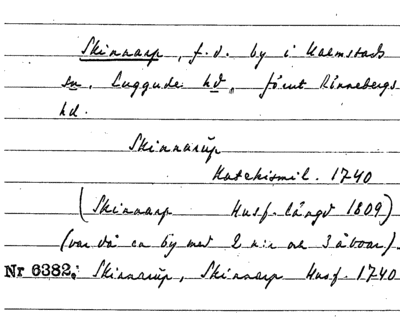 Skinnarp, f.d. by i Halmstads
sn, Luggude hd, förut Rönnebergs
hd.
Skinnarup
Katekismil. 1740
(Skinnarp Husf. längd 1809)
(var då en by med 2 n:r och 3 åboar).
Nr 6382. Skinnarup, Skinnarp Husf. 1740